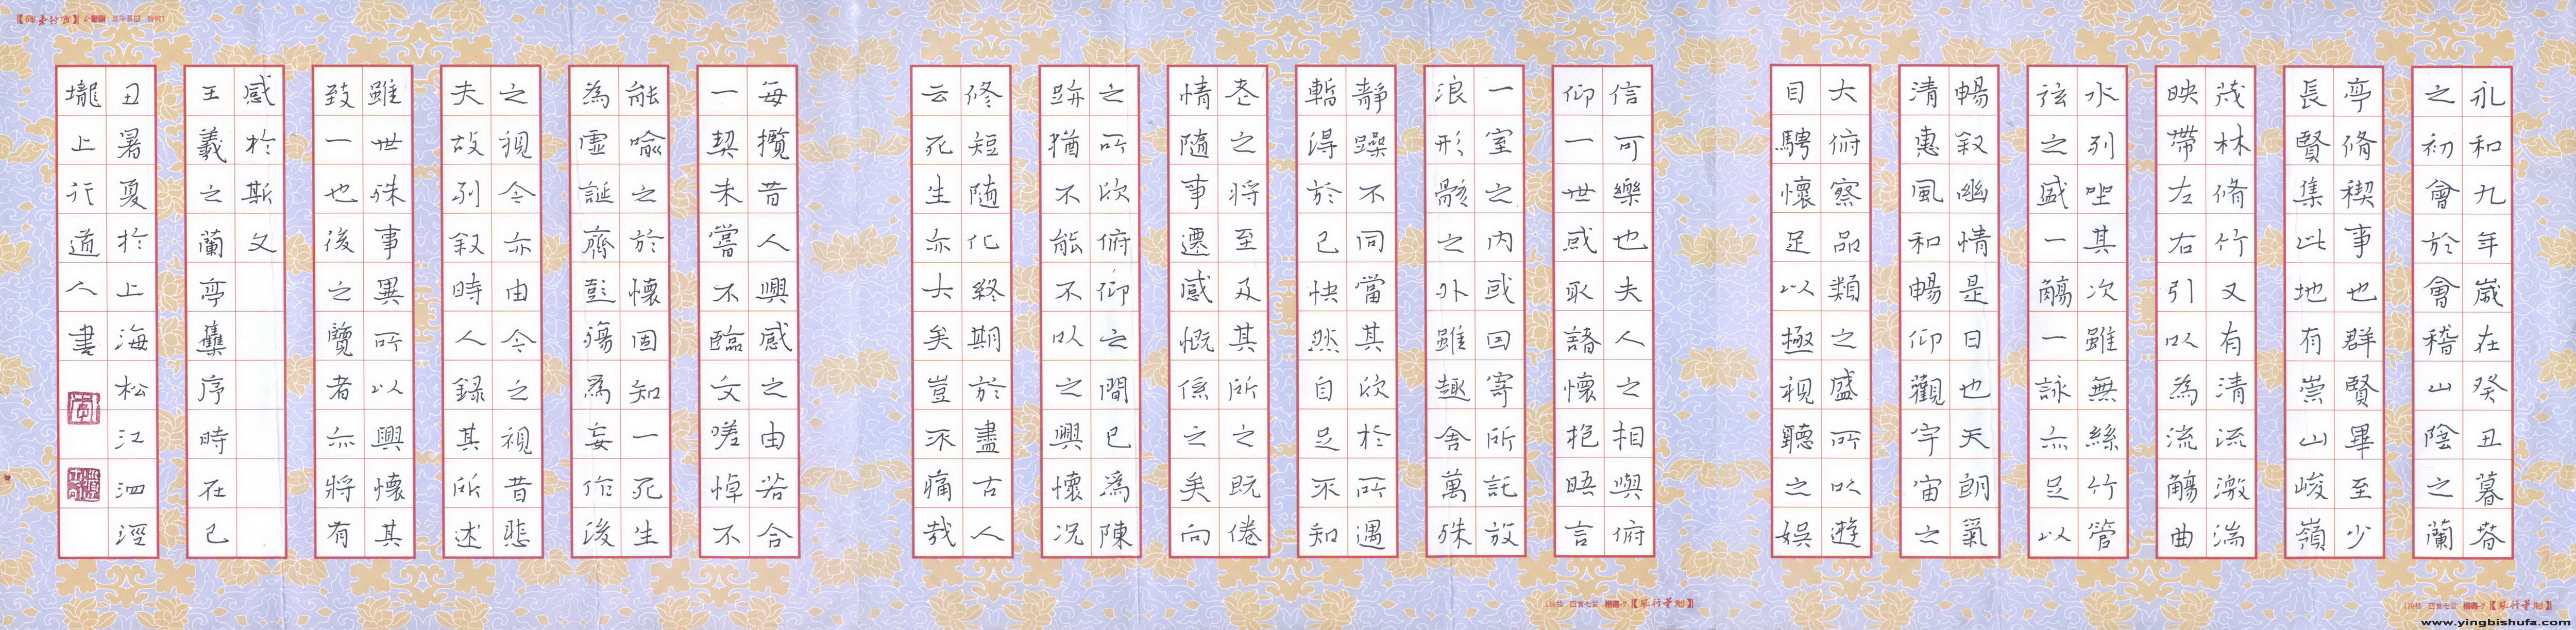 永和九年歲在癸丑暮春
之初會於會稽山陰之蘭
亭脩禊事也群賢畢至少
長賢集此地有崇山峻嶺
茂林脩竹又有清流激湍
映帶左右引以為流觴曲
水列坐其次雖無絲竹管
弦之盛一觴一詠亦足以
暢叙幽情是日也天朗氣
清惠風和暢仰觀宇宙之
大俯察品類之盛所以遊
目騁懷足以極視聽之娛
信可樂也夫人之相與俯
仰一世或取諸懷抱晤言
一室之内或因寄所託放
浪形骸之外雖趣舍萬殊
靜躁不同當其欣於所遇
暫得於己快然自足不知
老之将至及其所之既倦
情隨事遷感慨係之矣向
之所欣俯仰之間已為陳
跡猶不能不以之興懷况
修短随化終期於盡古人
云死生亦大矣豈不痛哉
每攬昔人興感之由若合
一契未嘗不臨文嗟悼不
能喻之於懷固知一死生
為虛誕齊彭殤為妄作後
之視今亦由今之視昔悲
夫故列叙時人録其所述
雖世殊事異所以興懷其
致一也後之覽者亦將有
感於斯文
王羲之蘭亭集序時在己
丑暑夏於上海松江泗涇
壠上行道人書
www.yingbishufa.com